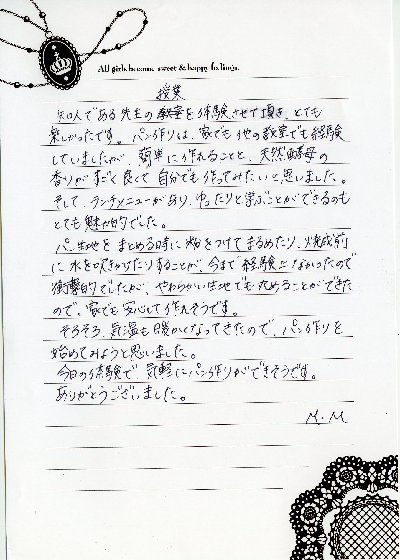 All girls become sweet & happy feelings.
授業
知人である先生の教室を体験させて頂き、とても
楽しかったです。パン作りは、家でも他の教室でも経験
していましたが、簡単に作れることと、天然酵母の
香りがすごく良くて自分でも作ってみたいと思いました。
そして、ランチメニューがあり、ゆったりと学ぶことができるのも
とても魅力的でした。
パン生地をまとめる時に粉をつけてまるめたり、焼成前
に水を吹きかけたりすることが、今まで経験上なかったので
衝撃的でしたが、やわらかい生地でも丸めることができた
ので、家でも安心して作れそうです。
そろそろ、気温も暖かくなってきたので、パン作りを
始めてみようと思いました。
今日の体験で気軽にパン作りができそうです。
ありがとうございました。
M.M